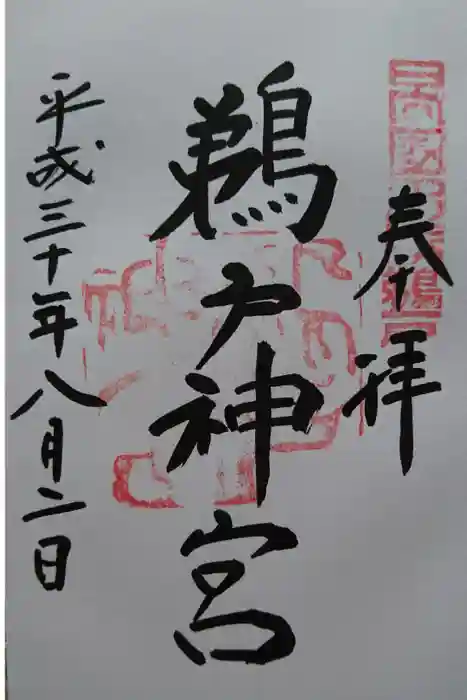 奉拝
鵜戸神宮
平成三十年八月二日